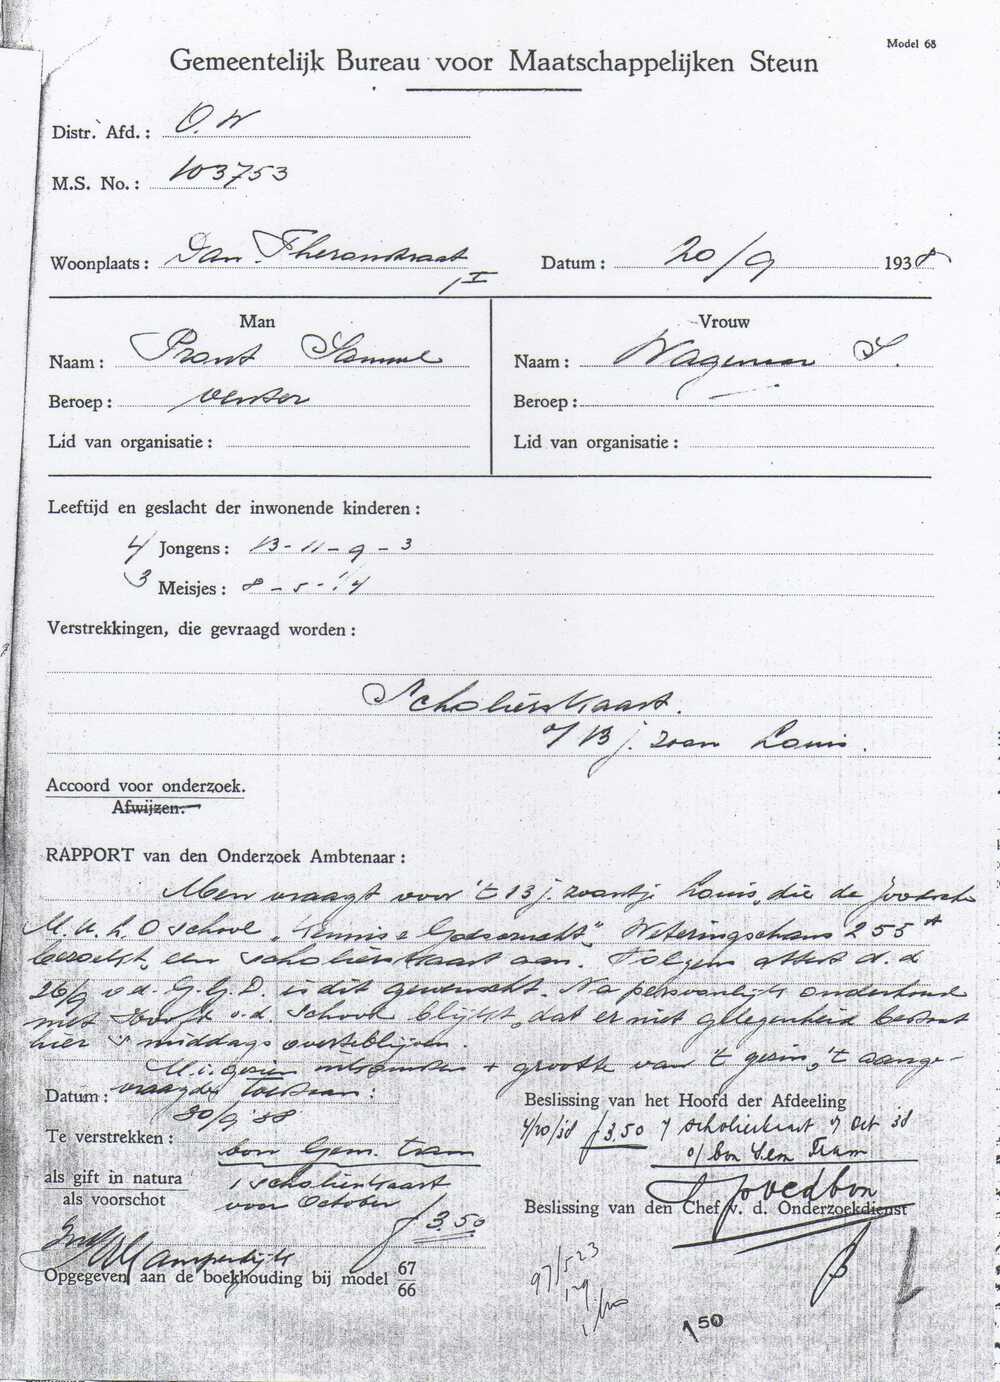 Model 68
Gemeentelijk Bureau voor Maatschappelijken Steun
Distr. Afd.: O.W
M.S. No.: 103753
Woonplaats: Dan. Theronstraat
1 I
Datum: 20/9 1938
Man
Naam: Pront Samuel
Beroep: venter
Lid van organisatie:
Vrouw
Naam: Wagenaar S.
Beroep: -
Lid van organisatie:
Leeftijd en geslacht der inwonende kinderen:
4 Jongens: 13 - 11 - 9 - 3
3 Meisjes: 8 - 5 - 1/4
Verstrekkingen, die gevraagd worden:
Scholierskaart.
v/ 13 j. zoon Louis.
Accoord voor onderzoek.
Afwijzen.
RAPPORT van den Onderzoek Ambtenaar:
Men vraagt voor 't 13 j. zoontje Louis, die de Joodsche
M.U.L.O school "Kennis & Godsvrucht", Weteringschans 255 A
bezoekt, een scholierskaart aan. Volgens attest d.d
26/9 v.d. G.G.D. is dit gewenscht. Na persoonlijk onderhoud
met Hoofd v.d. School blijkt, dat er niet gelegenheid bestaat
hier 's middags overteblijven.
M.i. gezien inkomsten + grootte van 't gezin, 't aange-
vraagde toestaan:
Datum: 30/9 '38
Te verstrekken: bon Gem. tram
als gift in natura 1 scholierkaart
als voorschot voor October f 3.50
Opgegeven aan de boekhouding bij model 67/66
Beslissing van het Hoofd der Afdeeling
4/10/38 f 3.50 1 scholierkaart Oct 38
v/ bon Gem Tram
Beslissing van den Chef v. d. Onderzoekdienst
97/523
1 50